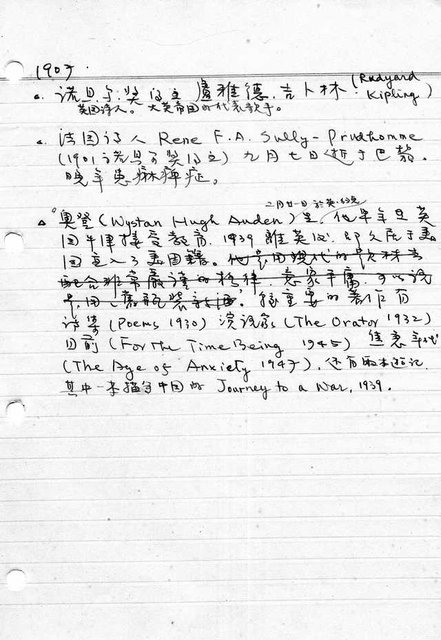 1907
△. 诺贝尔奖得主 盧雅德.吉卜林 (Rudyard Kipling)
英国诗人。大英帝国的代表歌手。
△. 法国诗人 Rene F.A. Sully-Prudhomme
(1901 诺贝尔奖得主) 九月七日逝于巴黎.
晚年患麻痺症.
二月廿一日 於英.约克
△ 奥登 (Wystan Hugh Auden) 生. 他早年自英
国牛津接受教育. 1939 離英後. 即久居于美
国並入了美国籍。他是用現代的
配合非常嚴謹的格律.
較重要的著作有
诗集 (Poems 1930) 演说家 (The Orator 1932)
目前 (For the Time Being 1945) 焦慮年代
(The Age of Anxiety 1947). 还有兩本遊记.
其中一本描写中国的 Journey to a War, 1939.